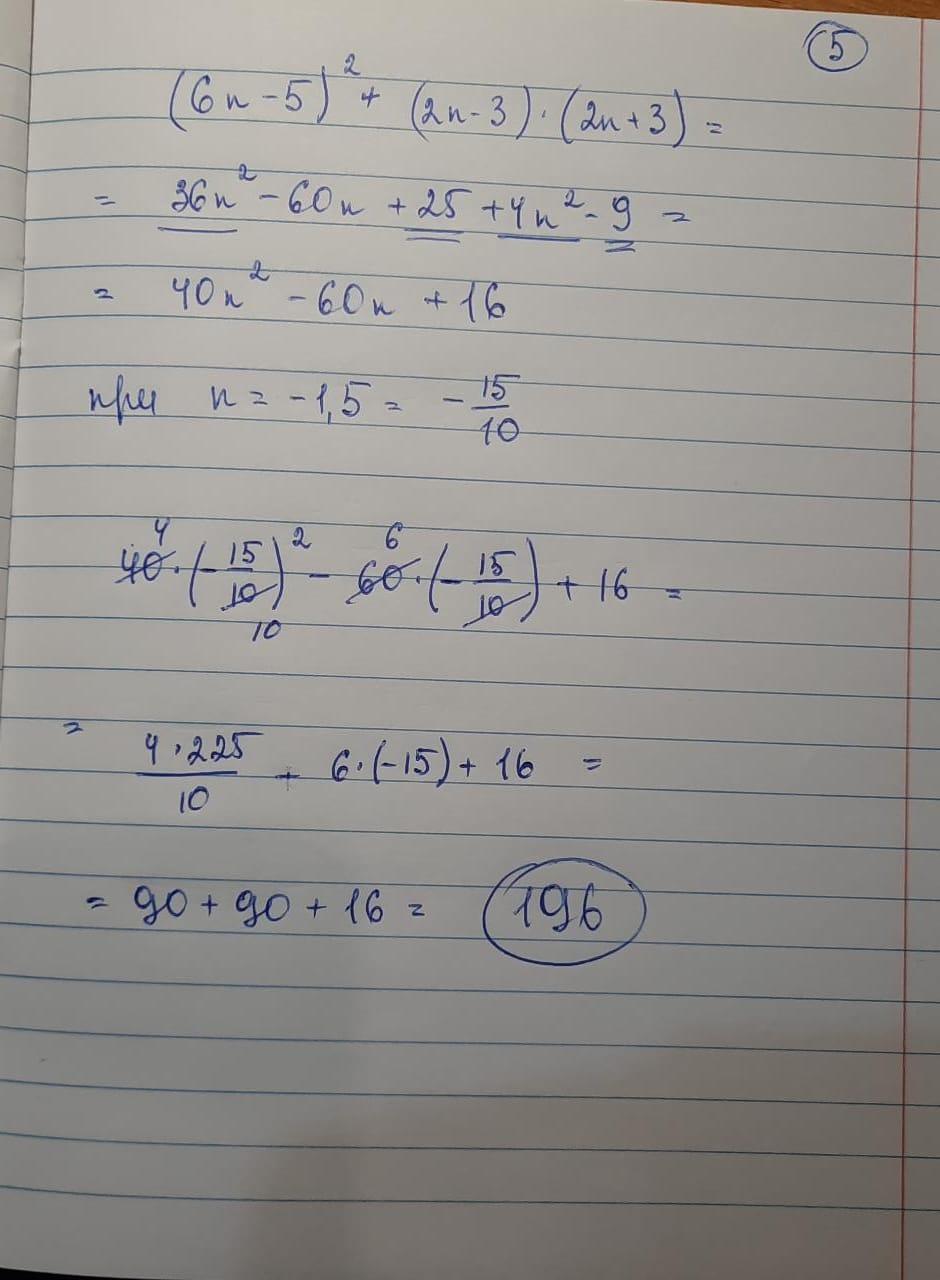 5
(6n - 5)² + (2n - 3) · (2n + 3) =
= 36n² - 60n + 25 + 4n² - 9 =
= 40n² - 60n + 16
при n = -1,5 = -15/10
4 6
40 · (-15/10)² - 60 · (-15/10) + 16 =
10
= 4 · 225/10 + 6 · (-15) + 16 =
= 90 + 90 + 16 = 196